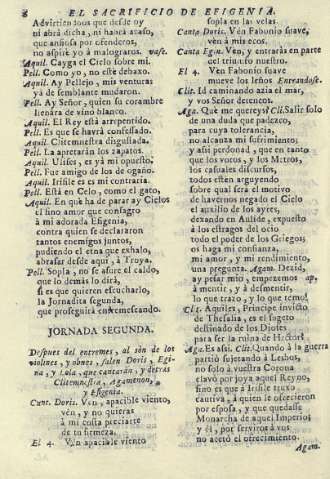 8 EL SACRIFICIO DE EFIGENIA.
Advirtiendoos que desde oy
ni abrà dicha, ni havrà acaso,
que ansiosa por ofenderos,
no aspire yo à malograros. vase.
Aquil. Cayga el Cielo sobre mi.
Pell. Como yo, no estè debaxo.
Aquil. Ay Pellejo, mis venturas
yà de semblante mudaron.
Pell. Ay Señor, quien su corambre
llenàra de vino blanco.
Aquil. El Rey està arrepentido.
Pell. Es que se havrà confessado.
Aquil. Clitemnestra disgustada.
Pell. La apretaràn los zapatos.
Aquil. Ulises, es yà mi opuesto.
Pell. Fue amigo de los de ogaño.
Aquil. Irifile es mi contraria.
Pell. Està en Celo, como el gato,
Aquil. En què ha de parar ay Cielos
el fino amor que consagro
à mi adorada Efigenia,
contra quien se declararon
tantos enemigos juntos,
pudiendo el etna que exhalo,
abrasar desde aqui, à Troya.
Pell. Sopla, no se asure el caldo,
que lo demàs lo dirà,
si es que quieren escucharlo,
la Jornadita segunda,
que proseguirà enremescando.
JORNADA SEGUNDA.
Despues del entremes, al sòn de los
violines, y obues, salen Doris, Egi-
na, y Lola, que cantaràn, y detràs
Clitemnestra, Agamenon,
y Efigenia.
Cant. Doris. Ven, apacible viento,
vèn, y no quieras
à mi costa preciarte
de tu firmeza.
El 4. Ven apacible viento
sopla en las velas.
Canta Doris. Vèn Fabonio suave,
vèn à mis ecos.
Canta Egin. Vèn, y entraràs en parte
del triunfo nuestro.
El 4. Vèn Fabonio suave
mueve los leños. Entrandose.
Clit. Id caminando àzia el mar,
y vos Señor deteneos.
Aga. Què me quereys? Clit. Salir solo
de una duda que padezco,
para cuya tolerancia,
no alcanza mi sufrimiento;
y asi perdonad, que en tanto
que los votos, y los Metros,
los casuales discursos,
todos estèn arguyendo
sobre qual serà el motivo
de havernos negado el Cielo
el auxilio de los ayres,
dexando en Aulide, expuesto
à los estragos del ocio
todo el poder de los Griegos;
os haga mi confianza,
mi amor, y mi rendimiento,
una pregunta. Agam. Dezid,
ay pesar mio, empezemos ap,
à mentir, y à desmentir,
lo que trazo, y lo que temo!
Clit. Aquiles, Principe invicto
de Thesalia, es el sugeto
destinado de los Dioses
para ser la ruina de Hector?
Ag. Es assi. Clit. Quando à la guerra
partiò sujetando à Lesbos,
no solo à vuestra Corona
clavò por joya aquel Reyno,
sino es que à Irifile truxo
cautiva, à quien le ofrecieron
por esposa, y que quedasse
Monarcha de aquel Imperio;
y èl, por serviros à vos
no acetò el ofrecimiento.
Agam.